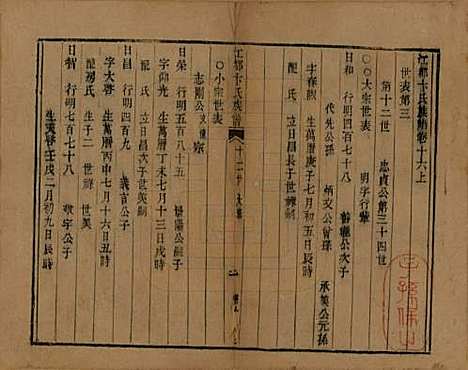 江都卞氏族譜卷十六上
世表第三
第十二世 忠貞公第三十四世
○○大宗世表 明字行輩
日和 行明四百七十 公子
代先公孫 炳文公曾孫 承美公元孫
字春淑 生萬曆庚子七月初五日辰時
配氏 立日昌長子世 嗣
江都卞氏族譜 十二世 大宗
○小宗世表
志剛公支 宗
日榮 行明五百八十五 公子
字仰光 生萬曆丁未七月十三日戌時
配氏 立日 世美嗣
日昌 行明六百七十八 公子
字大啓 生萬曆丙申七月十六日丑時
配房氏 生子二 世 世美
日智 行明七百七十八 敬宇公子
生天啓壬戌二月初九日辰時